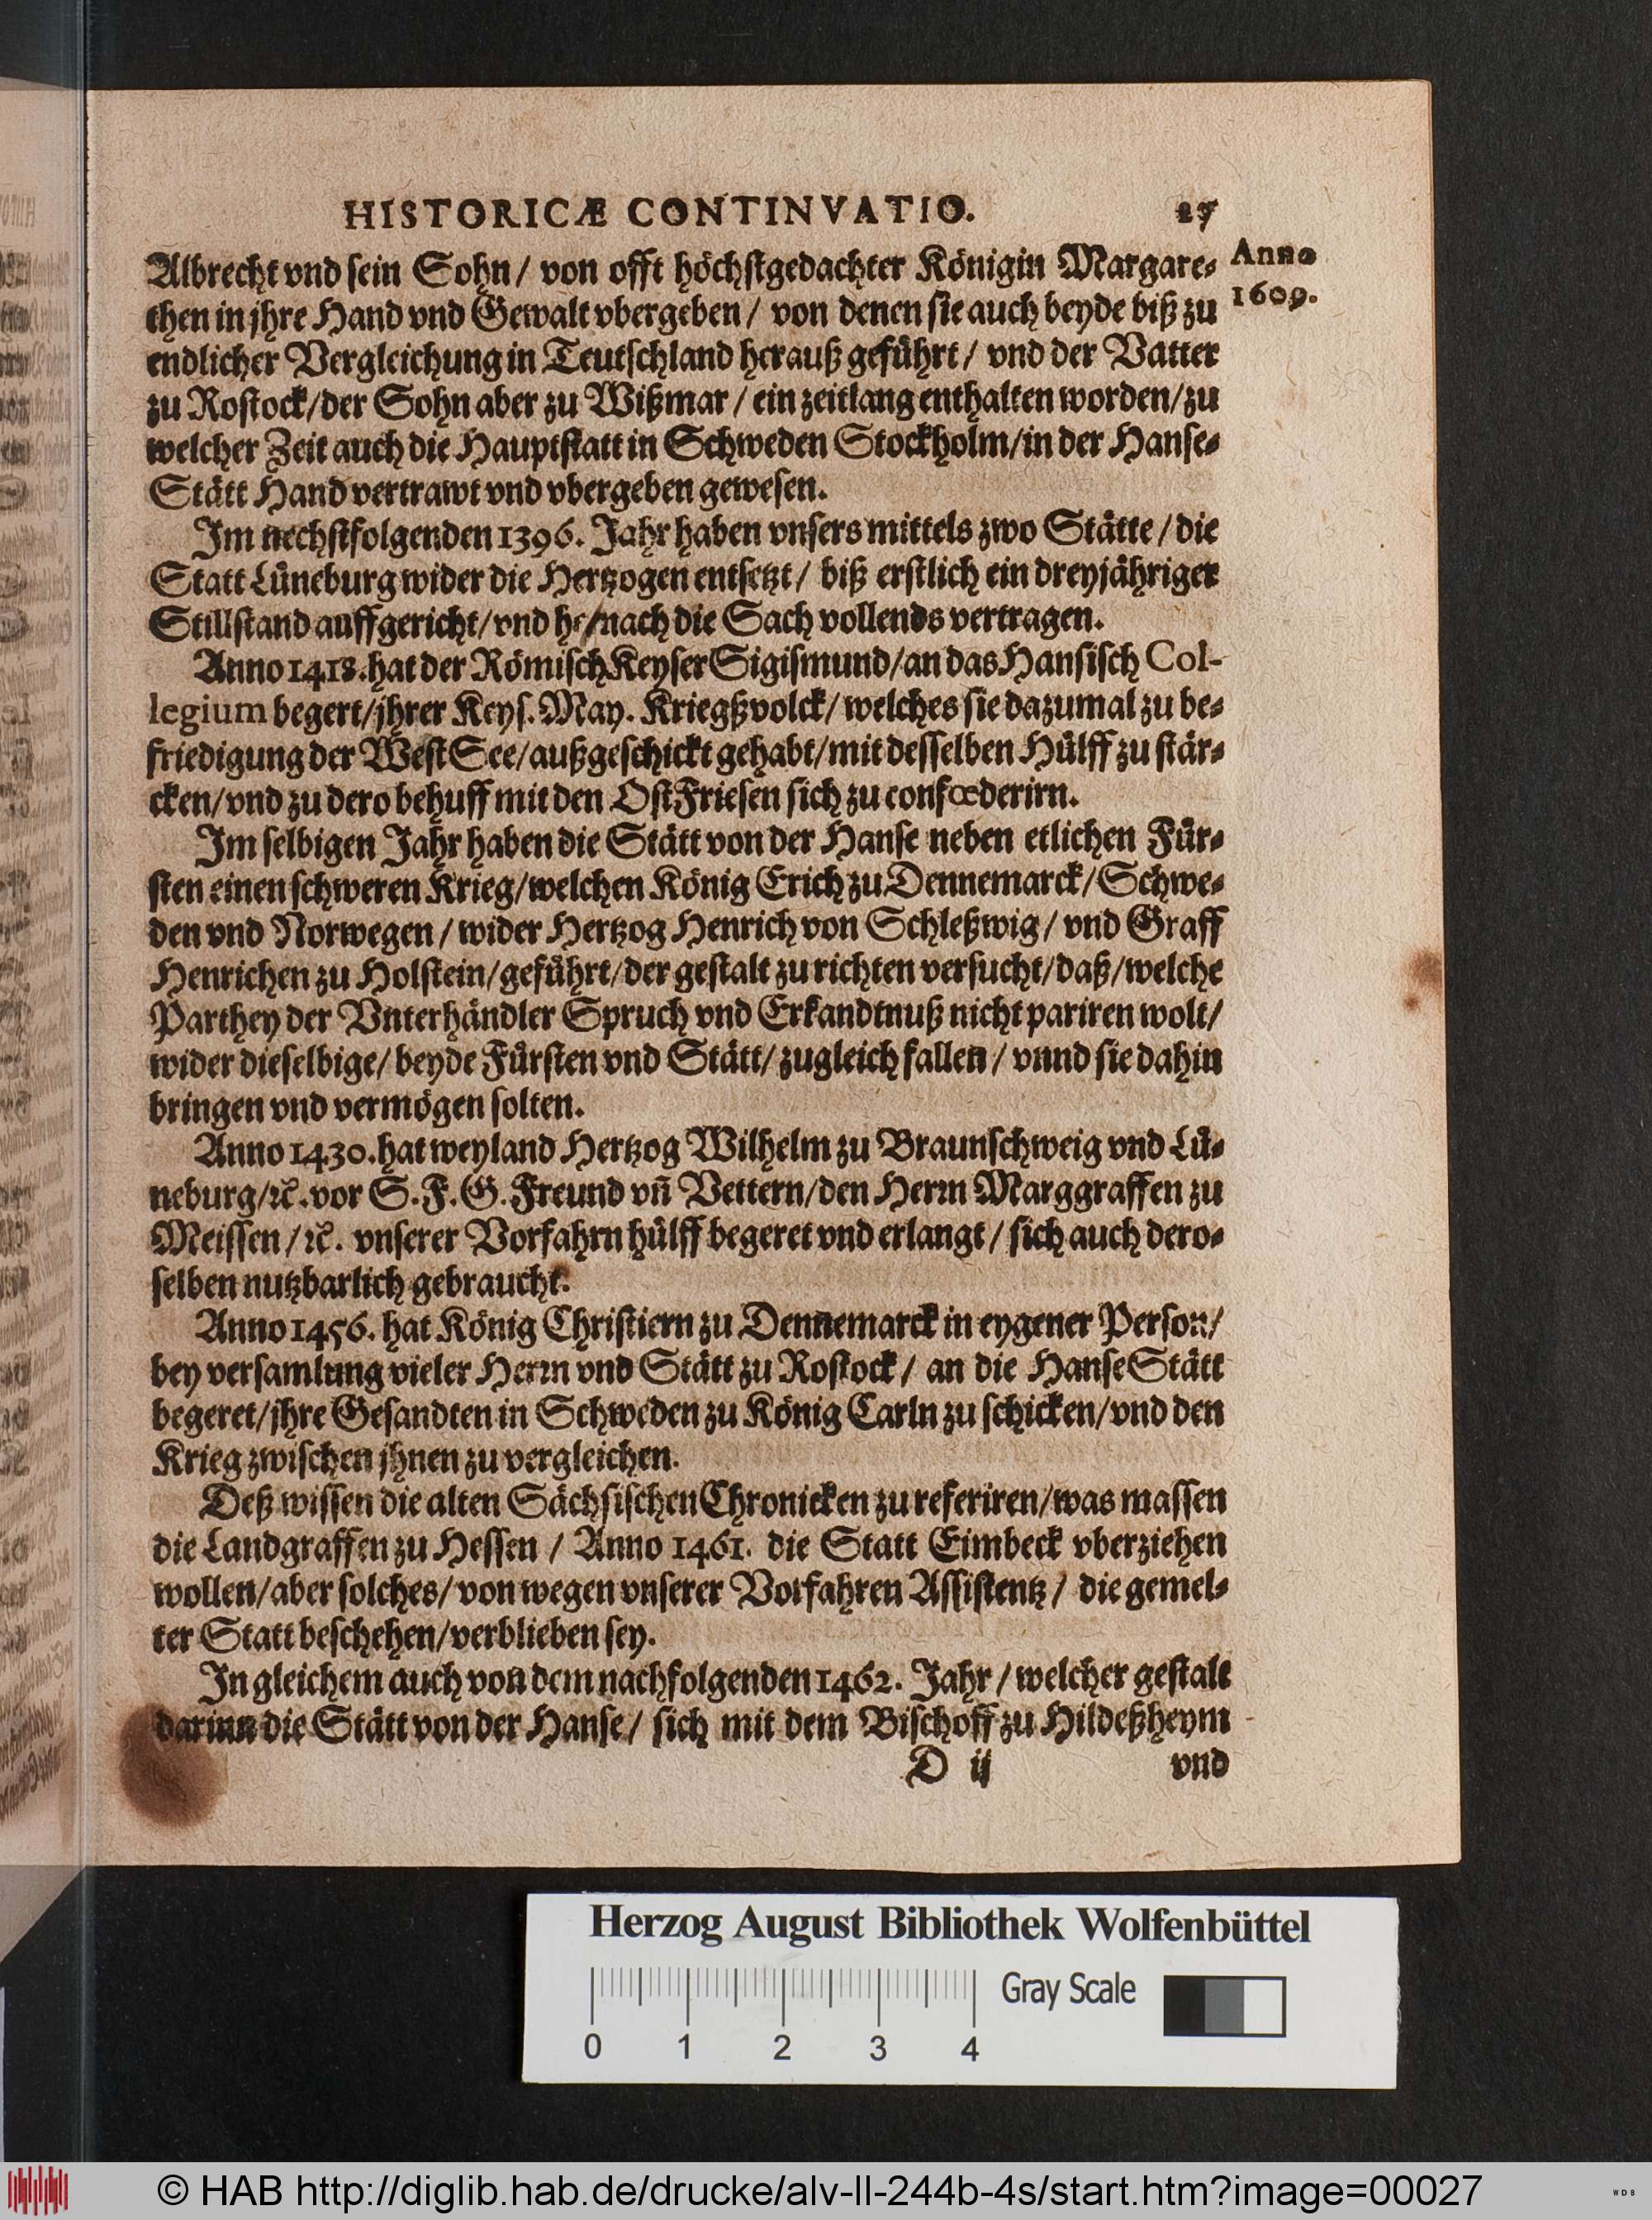 HISTORICÆ CONTINVATIO. 27
Anno
1609.
Albrecht vnd sein Sohn/ von offt höchstgedachter Königin Margare-
then in jhre Hand vnd Gewalt vbergeben/ von denen sie auch beyde biß zu
endlicher Vergleichung in Teutschland herauß geführt/ vnd der Vatter
zu Rostock/der Sohn aber zu Wißmar / ein zeitlang enthalten worden/zu
welcher Zeit auch die Hauptstatt in Schweden Stockholm/in der Hanse-
Stätt Hand vertrawt vnd vbergeben gewesen.
Im nechstfolgenden 1396. Jahr haben vnsers mittels zwo Stätte / die
Statt Lüneburg wider die Hertzogen entsetzt/ biß erstlich ein dreyjähriger
Stillstand auffgericht/vnd hernach die Sach vollends vertragen.
Anno 1418. hat der Römisch Keyser Sigismund/an das Hansisch Col-
legium begert/jhrer Keys. May. Kriegßvolck/ welches sie dazumal zu be-
friedigung der West See/außgeschickt gehabt/mit desselben Hülff zu stär-
cken/vnd zu dero behuff mit den OstFriesen sich zu confœderirn.
Im selbigen Jahr haben die Stätt von der Hanse neben etlichen Für-
sten einen schweren Krieg/welchen König Erich zu Dennemarck/Schwe-
den vnd Norwegen / wider Hertzog Henrich von Schleßwig/ vnd Graff
Henrichen zu Holstein/geführt/der gestalt zu richten versucht/daß/welche
Parthey der Vnterhändler Spruch vnd Erkandtnuß nicht pariren wolt/
wider dieselbige/ beyde Fürsten vnd Stätt/ zugleich fallen / vnnd sie dahin
bringen vnd vermögen solten.
Anno 1430. hat weyland Hertzog Wilhelm zu Braunschweig vnd Lü-
neburg/ꝛc. vor S. F. G. Freund vñ Vettern/den Herrn Marggraffen zu
Meissen /ꝛc. vnserer Vorfahrn hülff begeret vnd erlangt / sich auch dero-
selben nutzbarlich gebraucht.
Anno 1456. hat König Christiern zu Dennemarck in eygener Person/
bey versamlung vieler Herrn vnd Stätt zu Rostock / an die HanseStätt
begeret/jhre Gesandten in Schweden zu König Carln zu schicken/vnd den
Krieg zwischen jhnen zu vergleichen.
Deß wissen die alten Sächsischen Chronicken zu referiren/was massen
die Landgraffen zu Hessen / Anno 1461. die Statt Eimbeck vberziehen
wollen/aber solches/ von wegen vnserer Vorfahren Assistentz / die gemel-
ter Statt beschehen/verblieben sey.
In gleichem auch von dem nachfolgenden 1462. Jahr / welcher gestalt
darinn die Stätt von der Hanse/ sich mit dem Bischoff zu Hildeßheym
D ij vnd
Herzog August Bibliothek Wolfenbüttel
Gray Scale
0 1 2 3 4
© HAB http://diglib.hab.de/drucke/alv-ll-244b-4s/start.htm?image=00027
WDB